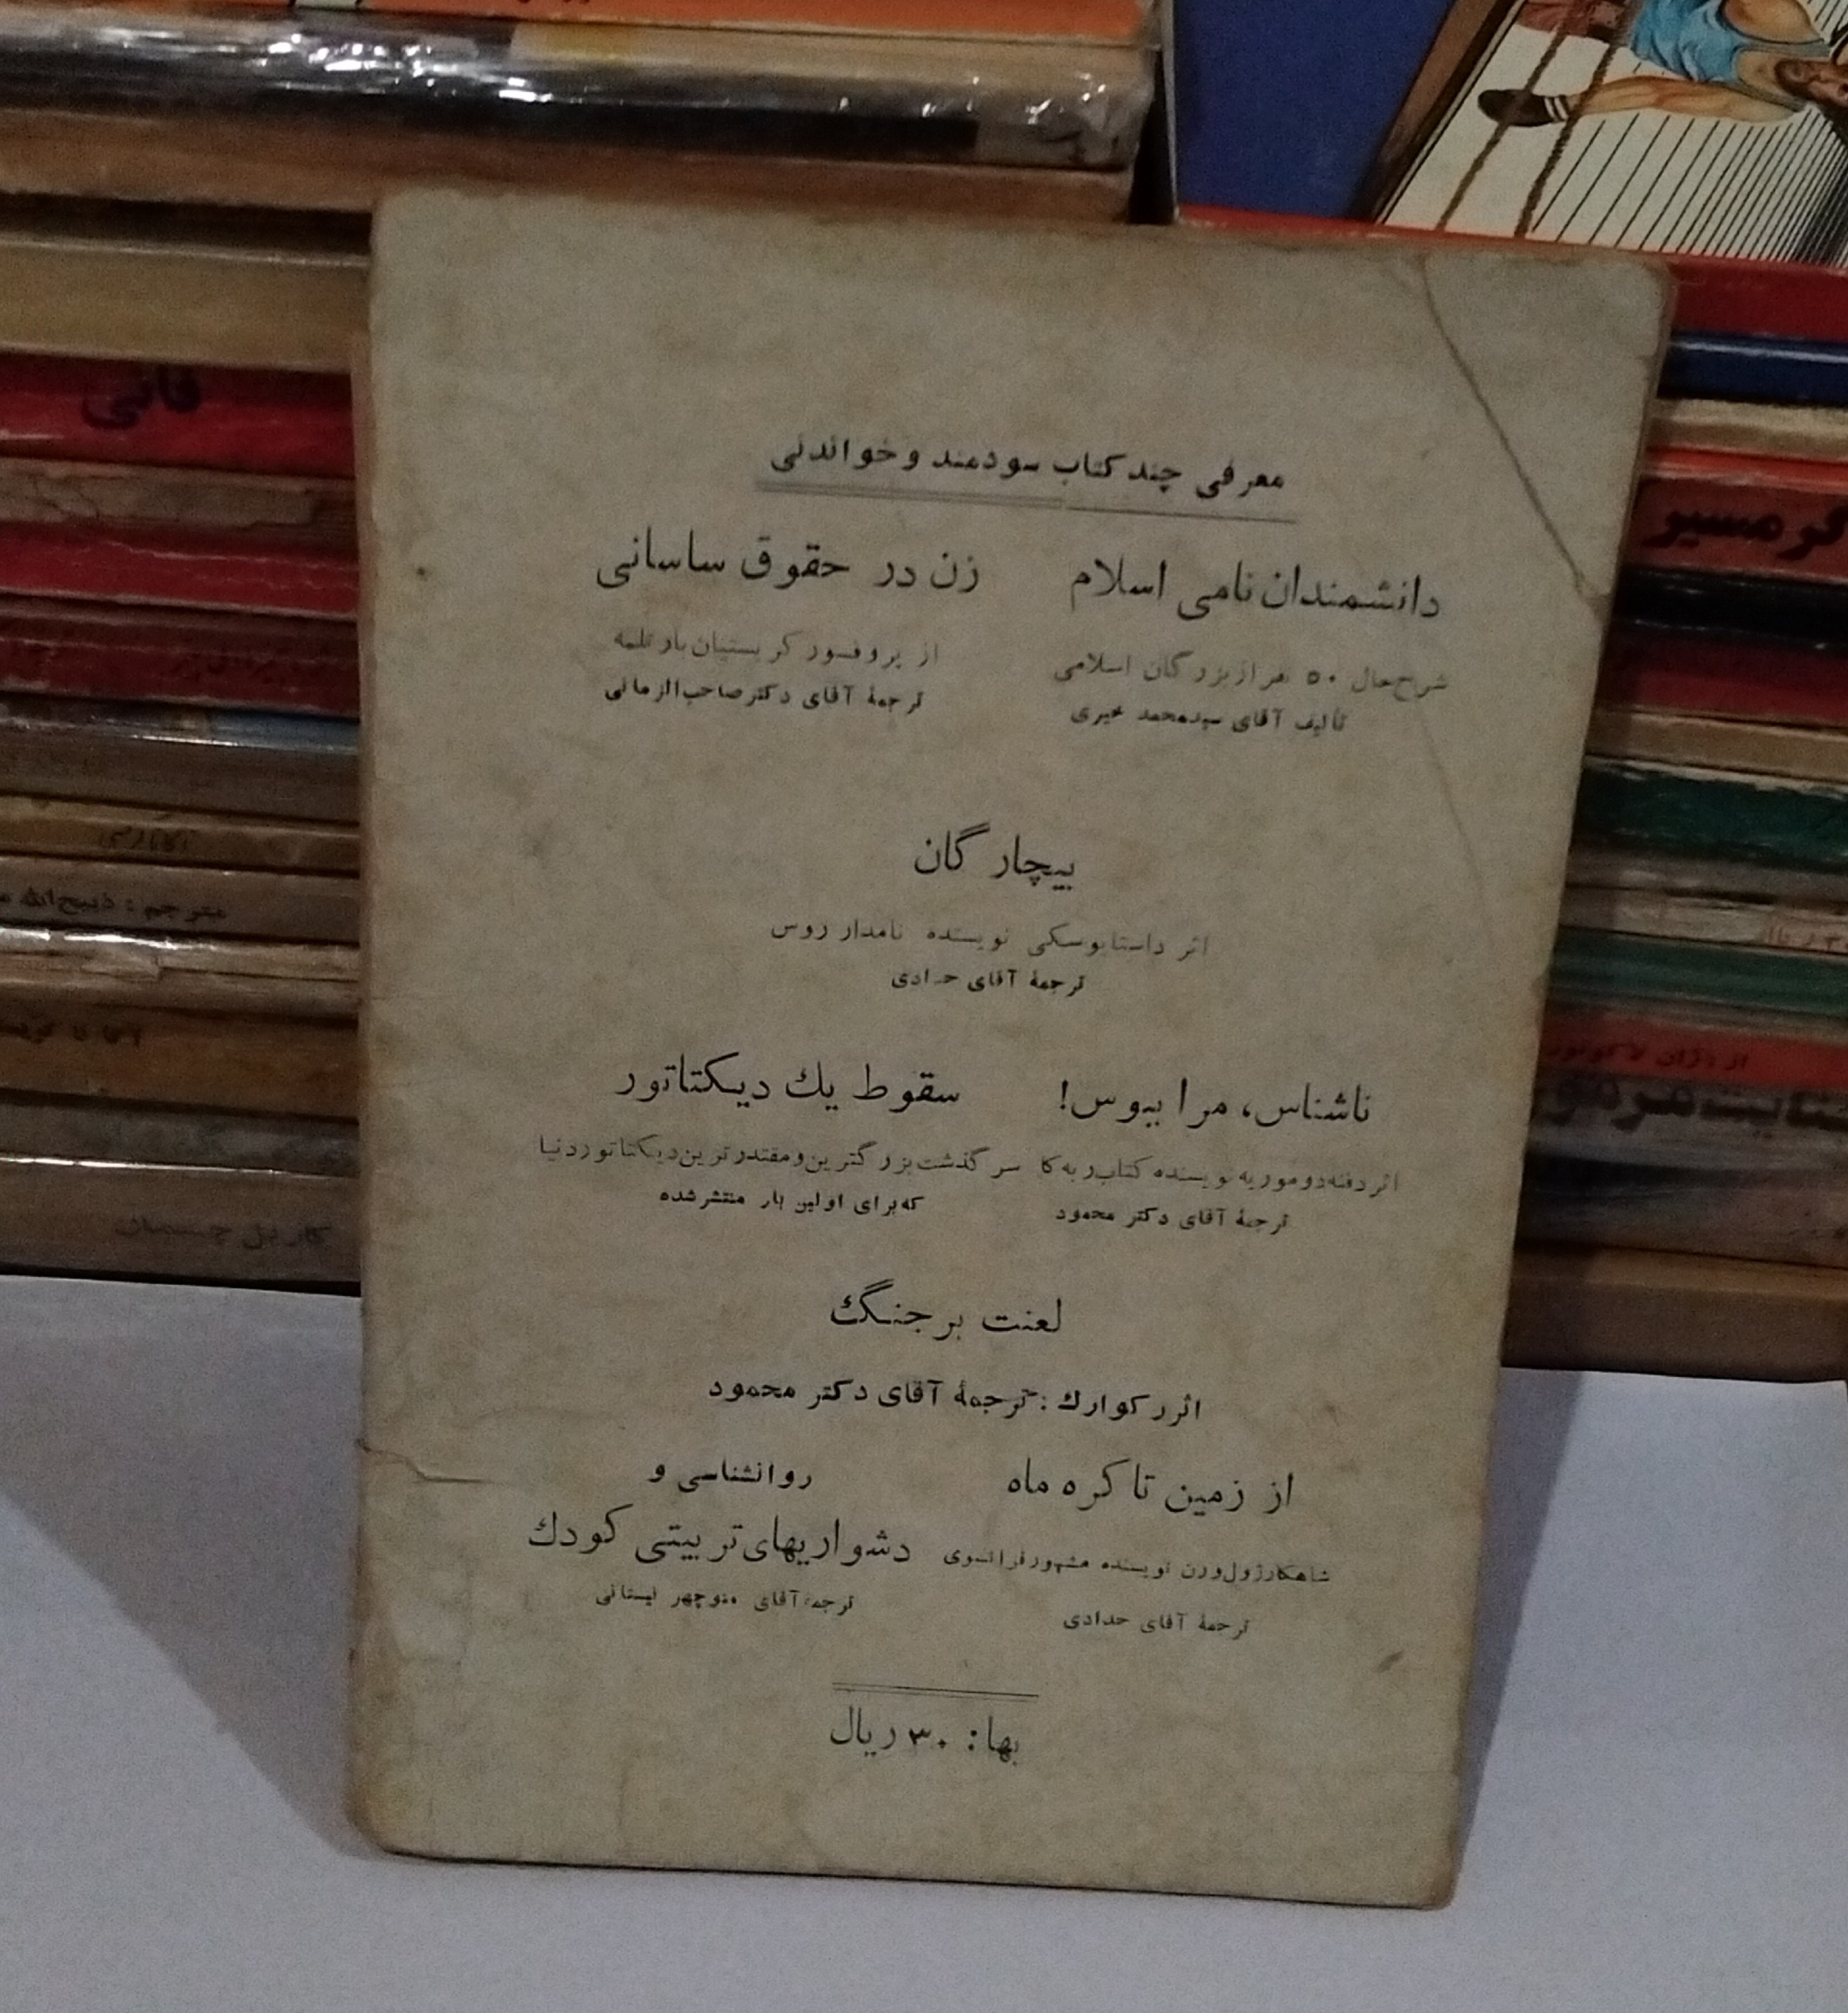 معرفی چند کتاب سودمند و خواندنی
دانشمندان نامی اسلام
شرح حال ۵۰ نفر از بزرگان اسلامی
تألیف آقای سیدمحمد خیری
زن در حقوق ساسانی
از پروفسور کریستیان بارتلمه
ترجمهٔ آقای دکتر صاحب‌الزمانی
بیچارگان
اثر داستایوسکی نویسنده نامدار روس
ترجمهٔ آقای حدادی
ناشناس، مرا ببوس!
اثر دفنه دوموریه نویسنده کتاب ربه کا
ترجمهٔ آقای دکتر محمود
سقوط یك دیکتاتور
سرگذشت بزرگترین و مقتدرترین دیکتاتور دنیا
که برای اولین بار منتشر شده
لعنت بر جنگ
اثر رکوارك : ترجمهٔ آقای دکتر محمود
از زمین تا کره ماه
شاهکار ژول ورن نویسنده مشهور فرانسوی
ترجمهٔ آقای حدادی
روانشناسی و
دشواریهای تربیتی کودك
ترجمهٔ آقای منوچهر نیستانی
بها: ۳۰ ریال
فانی
گرمسیر
مترجم : ذبیح‌الله